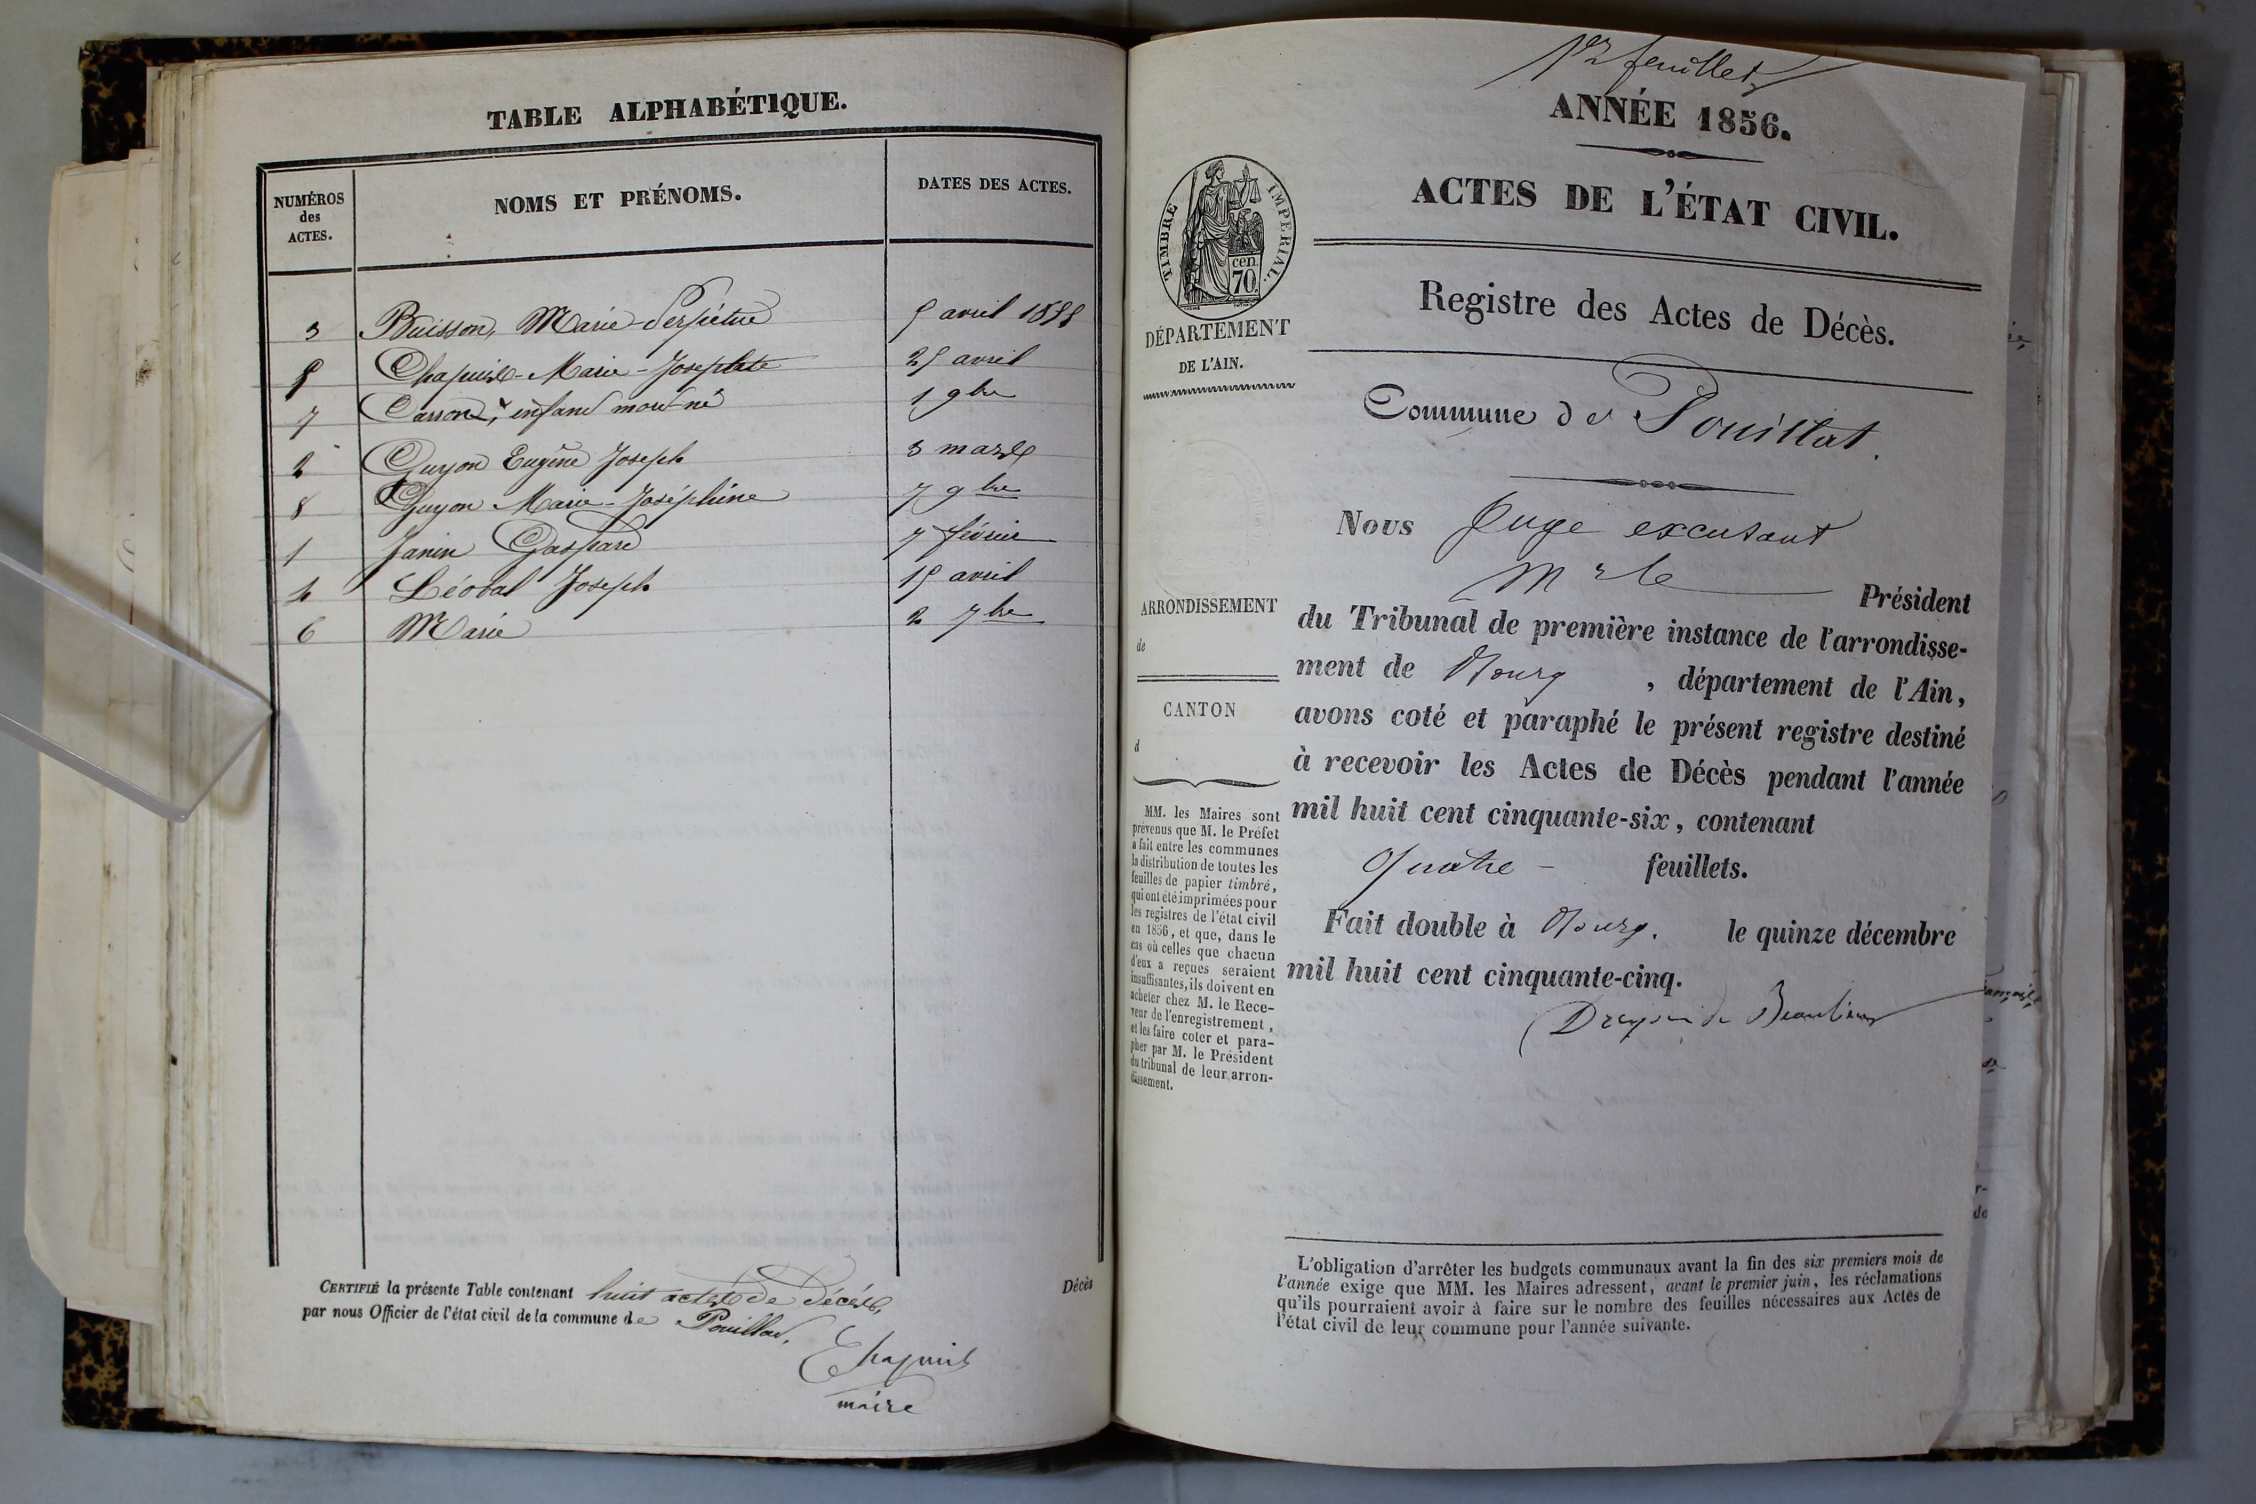 TABLE ALPHABÉTIQUE.
NUMÉROS des ACTES.
NOMS ET PRÉNOMS.
DATES DES ACTES.
3 Buisson, Marie-Perpétue 5 avril 1855
5 Chapuis Marie-Josephte 25 avril
7 Carron, enfant mort-né 1 9bre
2 Guyon Eugène Joseph 3 mars
8 Guyon Marie-Joséphine 7 9bre
1 Janin Gaspard 7 février
4 Léobal Joseph 15 avril
6 Marie 2 7bre
CERTIFIÉ la présente Table contenant huit actes de décès, Décès
par nous Officier de l'état civil de la commune de Pouillat,
Chapuis
maire
1er feuillet
ANNÉE 1856.
ACTES DE L'ÉTAT CIVIL.
TIMBRE IMPÉRIAL.
cen.
70.
Registre des Actes de Décès.
DÉPARTEMENT
DE L'AIN.
Commune de Pouillat.
Nous Juge excusant
Mr le Président
du Tribunal de première instance de l'arrondisse-
ment de Bourg, département de l'Ain,
avons coté et paraphé le présent registre destiné
à recevoir les Actes de Décès pendant l'année
mil huit cent cinquante-six, contenant
Quatre - feuillets.
Fait double à Bourg. le quinze décembre
mil huit cent cinquante-cinq.
ARRONDISSEMENT
de
CANTON
d
MM. les Maires sont
prévenus que M. le Préfet
a fait entre les communes
la distribution de toutes les
feuilles de papier timbré,
qui ont été imprimées pour
les registres de l'état civil
en 1856, et que, dans le
cas où celles que chacun
d'eux a reçues seraient
insuffisantes, ils doivent en
acheter chez M. le Rece-
veur de l'enregistrement,
et les faire coter et para-
pher par M. le Président
du tribunal de leur arron-
dissement.
L'obligation d'arrêter les budgets communaux avant la fin des six premiers mois de
l'année exige que MM. les Maires adressent, avant le premier juin, les réclamations
qu'ils pourraient avoir à faire sur le nombre des feuilles nécessaires aux Actes de
l'état civil de leur commune pour l'année suivante.